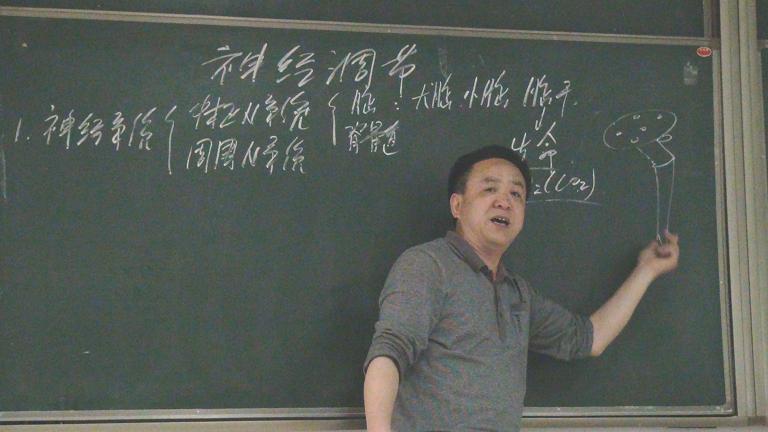 神经调节
1. 神经系统 { 中枢N系统 { 脑：大脑 小脑 脑干
周围N系统 脊髓
生命
2(CO2)